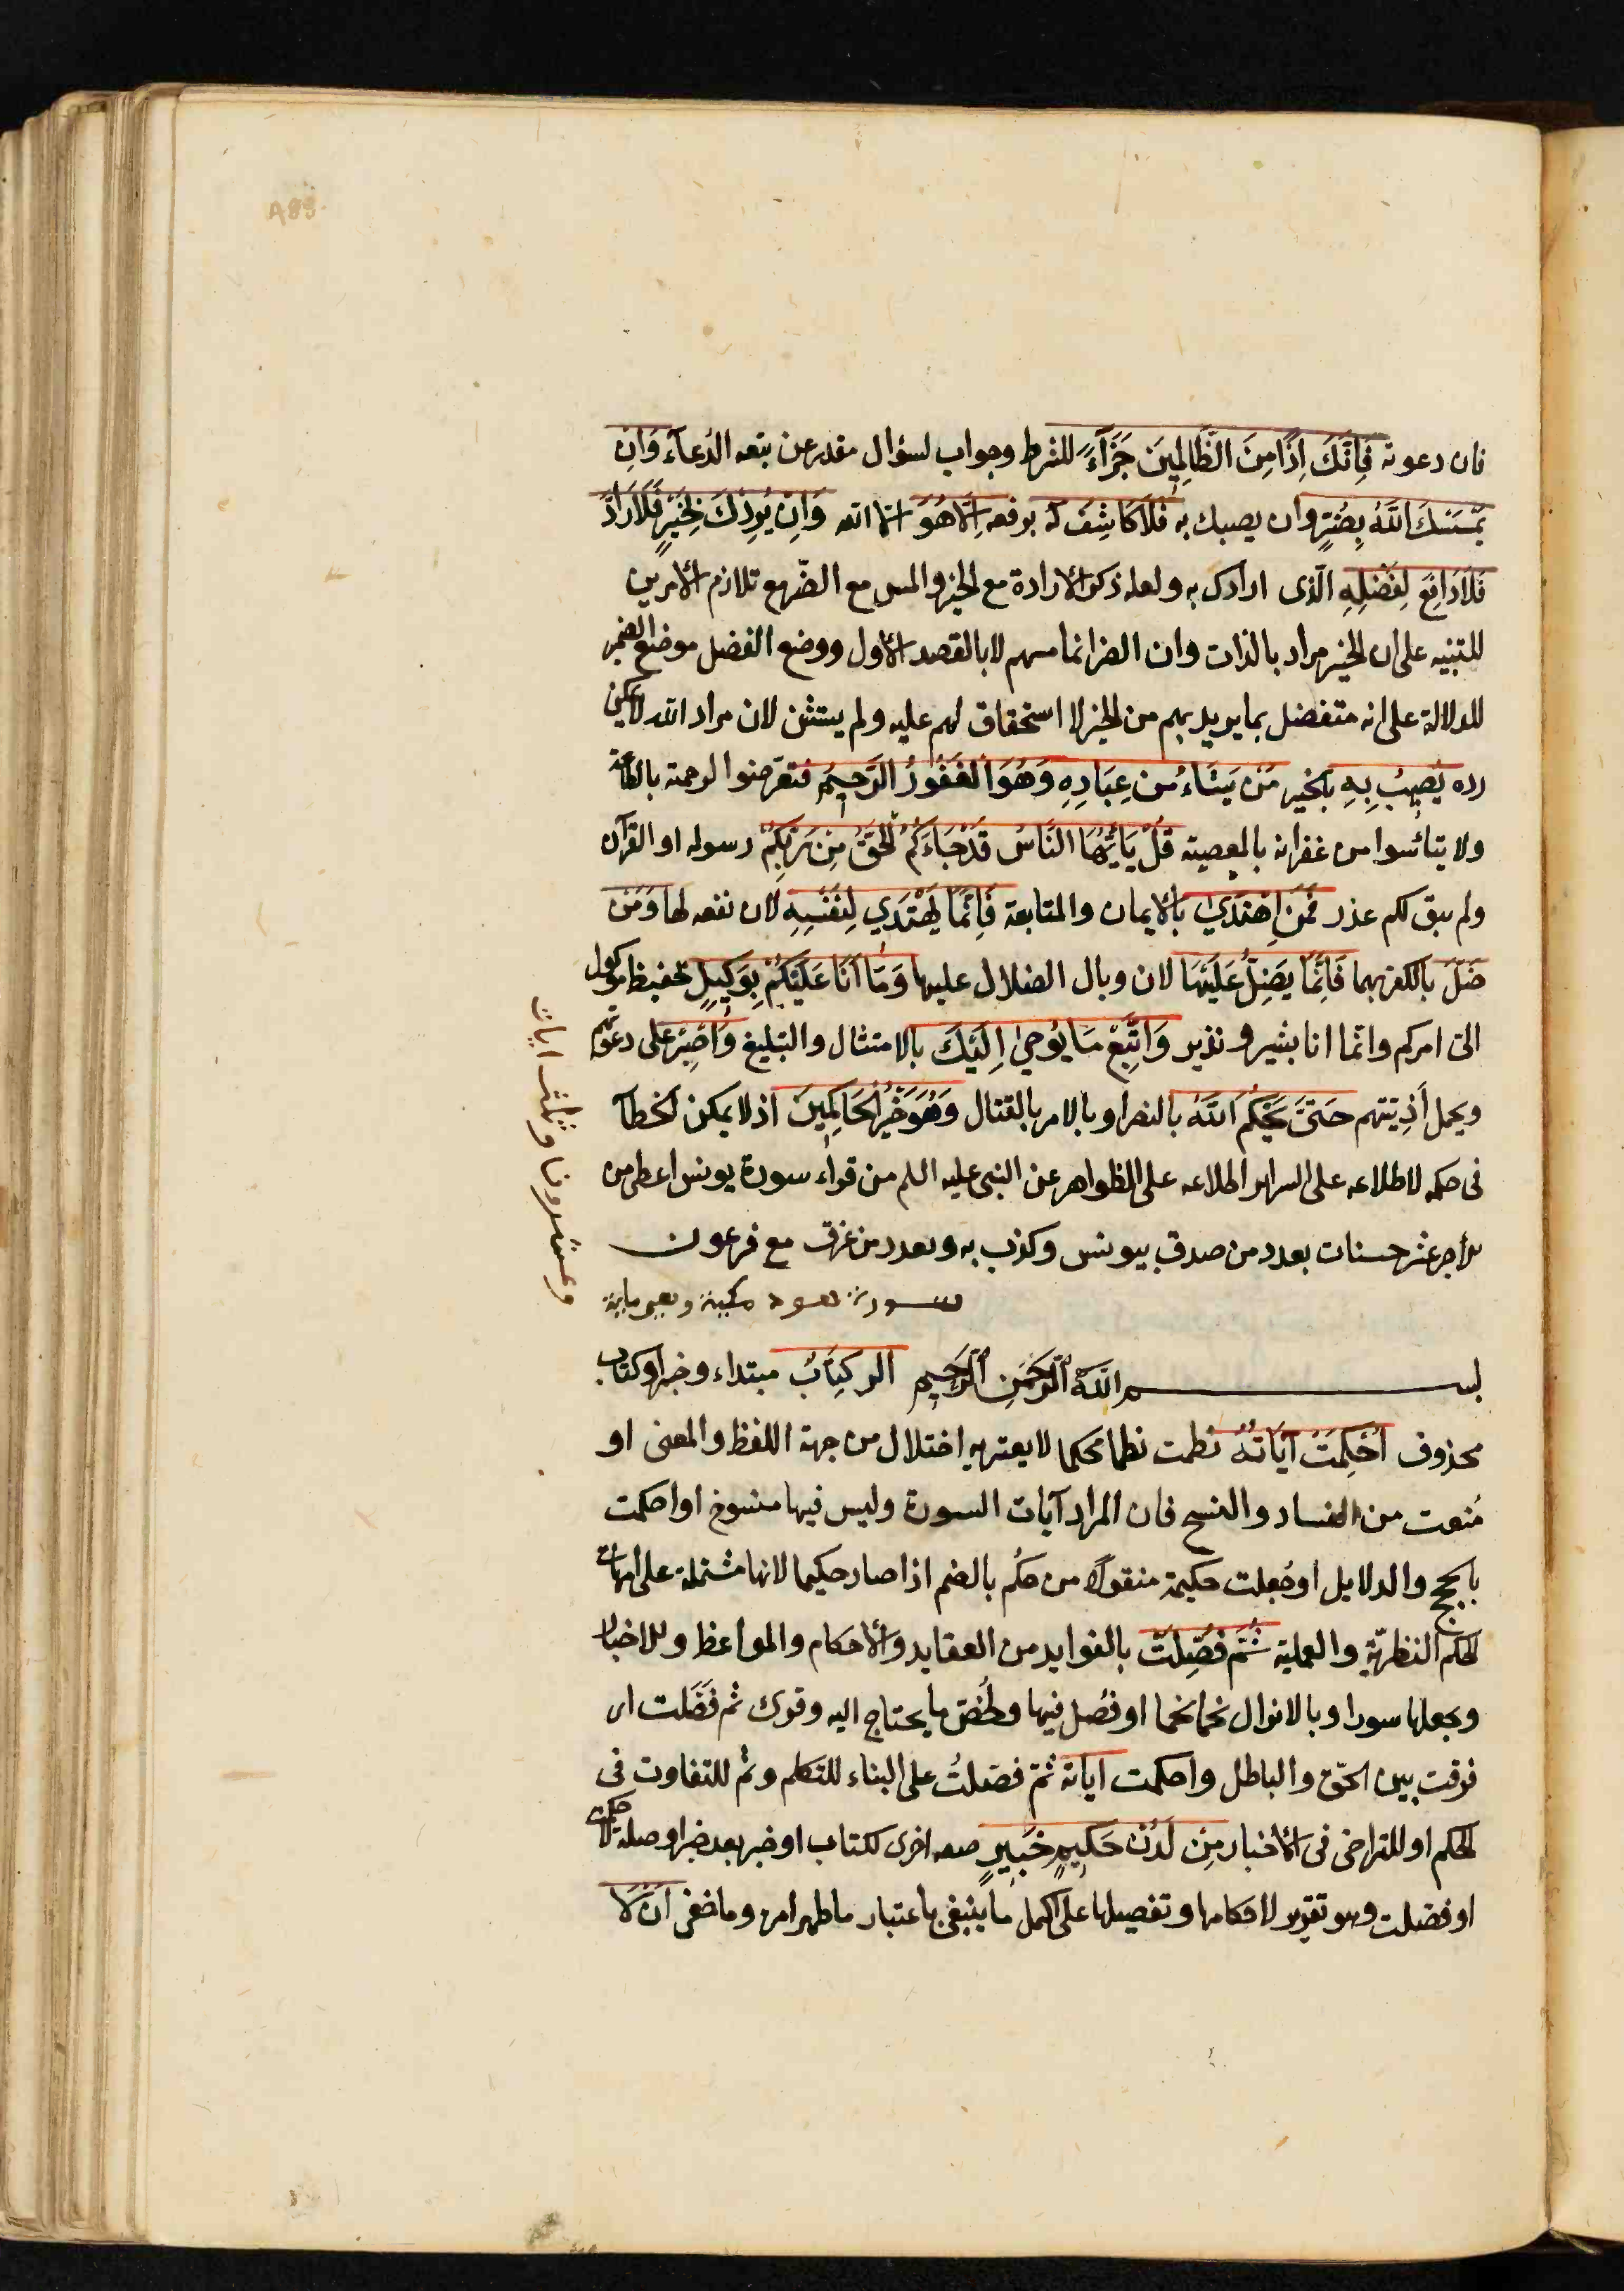 فان دعوته فَاِنَّكَ اِذًا مِنَ الظَّالِمِينَ جَزَآءً للشرط وجواب لسؤال مقدر عن تبعه الدُعآء وَاِن
يَمْسَسْكَ اللَّهُ بِضُرٍّ وان يصبك به فَلَا كَاشِفَ لَهُ برفعه اِلَّا هُوَ الا الله وَاِنْ يُرِدْكَ بِخَيْرٍ فَلَا رَادَّ
فَلَا دَافِعَ لِفَضْلِهِ الّذى ارادك به ولعله ذكر الارادة مع الخير والمس مع الضّر مع تلازم الامرين
للتنبيه على ان الخير مراد بالذات وان الضر انما مسهم لا بالقصد الاول ووضع الفضل موضع الضمير
للدلالة على انه متفضل بما يريد بهم من الخير لا استحقاق لهم عليه ولم يستثن لان مراد الله لا يمكن
رده يُصِيبُ بِهِ بالخير مَنْ يَشَاءُ مِنْ عِبَادِهِ وَهُوَ الْغَفُورُ الرَّحِيمُ فتعرّضوا لرحمته بالطاعة
ولا تيائسوا من غفرانه بالمعصية قُلْ يَاأَيُّهَا النَّاسُ قَدْ جَاءَكُمُ الْحَقُّ مِنْ رَبِّكُمْ رسوله او القرآن
ولم يبق لكم عذر فَمَنِ اهْتَدَى بالايمان والمتابعة فَاِنَّمَا يَهْتَدِي لِنَفْسِهِ لان نفعه لها وَمَنْ
ضَلَّ بالكفر بهما فَاِنَّمَا يَضِلُّ عَلَيْهَا لان وبال الضلال عليها وَمَا اَنَا عَلَيْكُمْ بِوَكِيلٍ بحفيظ موكول
الىّ امركم وانّما انا بشير ونذير وَاتَّبِعْ مَا يُوحَى اِلَيْكَ بالامتثال والتبليغ وَاصْبِرْ على دعوتهم
وتحمل أَذِيّتهم حَتَّى يَحْكُمَ اللَّهُ بالنصر او بالامر بالقتال وَهُوَ خَيْرُ الْحَاكِمِينَ اذ لا يمكن الخطآ
فى حكمه لاطلاعه على السراير اطلاعه على الظواهر عن النبى عليه السلم من قراء سورة يونس اعطى من
الاجر عشر حسنات بعدد من صدق بيونس وكذب به وبعدد من غرق مع فرعون
سورة هود مكية وهى ماية
وعشرون وثلث ايات
بسم اللَّهِ الرَّحْمَنِ الرَّحِيمِ الر كِتَابٌ مبتداء وخبر او كتاب خبر
محذوف اُحْكِمَتْ آيَاتُهُ نظمت نظما محكما لا يعتريه اختلال من جهة اللفظ والمعنى او
مُنعت من الفساد والنسخ فان المراد آيات السورة وليس فيها منسوخ او احكمت
بالحجج والدلايل او جُعلت حكيمة منقولا من حكُم بالضم اذا صار حكيما لانها مشتملة على امهات
الحكم النظريّة والعملية ثُمَّ فُصِّلَتْ بالفوايد من العقايد والاحكام والمواعظ والاخبار
وبجعلها سورا وبالانزال نجما نجما او فُصل فيها ولُخّص ما يحتاج اليه وقرئ ثم فَصَلت اى
فرقت بين الحقّ والباطل واحكمت اياته ثمّ فصّلتُ على البناء للتكلم وثم للتفاوت فى
الحكم او للتراخى فى الاخبار مِنْ لَدُنْ حَكِيمٍ خَبِيرٍ صفه اخرى لكتاب او خبر بعد خبر او صله لاحكمت
او فصلت وهو تقرير لاحكامها وتفصيلها على اكمل ما ينبغى باعتبار ما ظهر امره وما خفى اَنْ لَا